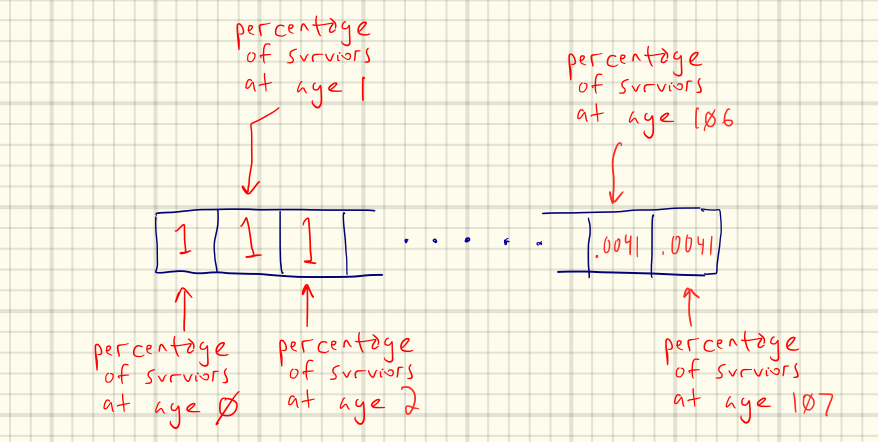 percentage
of surviors
at age 1
percentage
of surviors
at age 106
1 1 1 ..... .0041 .0041
percentage
of surviors
at age 0
percentage
of surviors
at age 2
percentage
of surviors
at age 107